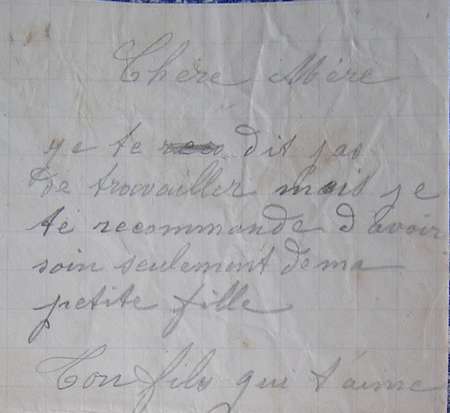 Chère Mère
ye te dit pas
de travailler mais je
te recommande d'avoir
soin seulement de ma
petite fille
Ton fils qui t'aime